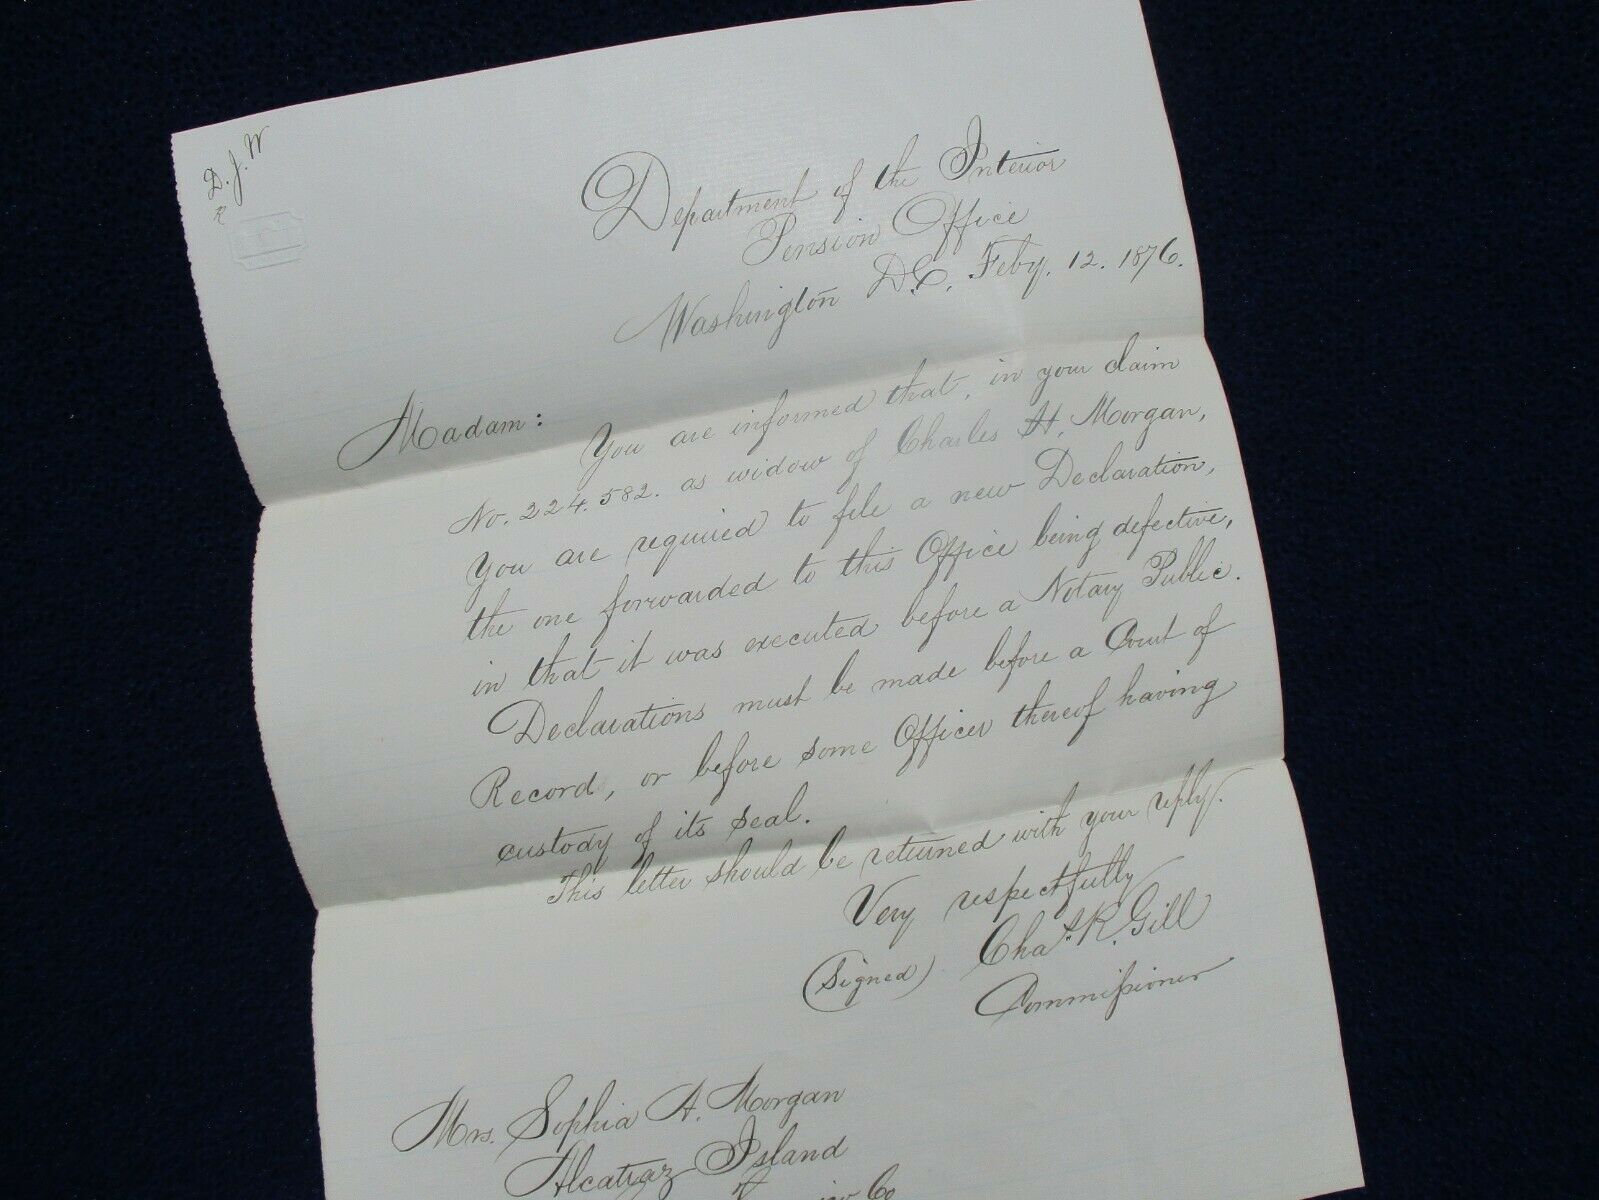 D. J. W
R
Department of the Interior
Pension Office
Washington D.C. Feby. 12. 1876.
Madam:
You are informed that, in your claim
No. 224.582. as widow of Charles H. Morgan,
You are required to file a new Declaration,
the one forwarded to this Office being defective,
in that it was executed before a Notary Public.
Declarations must be made before a Court of
Record, or before some Officer thereof having
custody of its seal.
This letter should be returned with your reply.
Very respectfully
(Signed) Chas. R. Gill
Commissioner
Mrs. Sophia A. Morgan
Alcatraz Island
Co